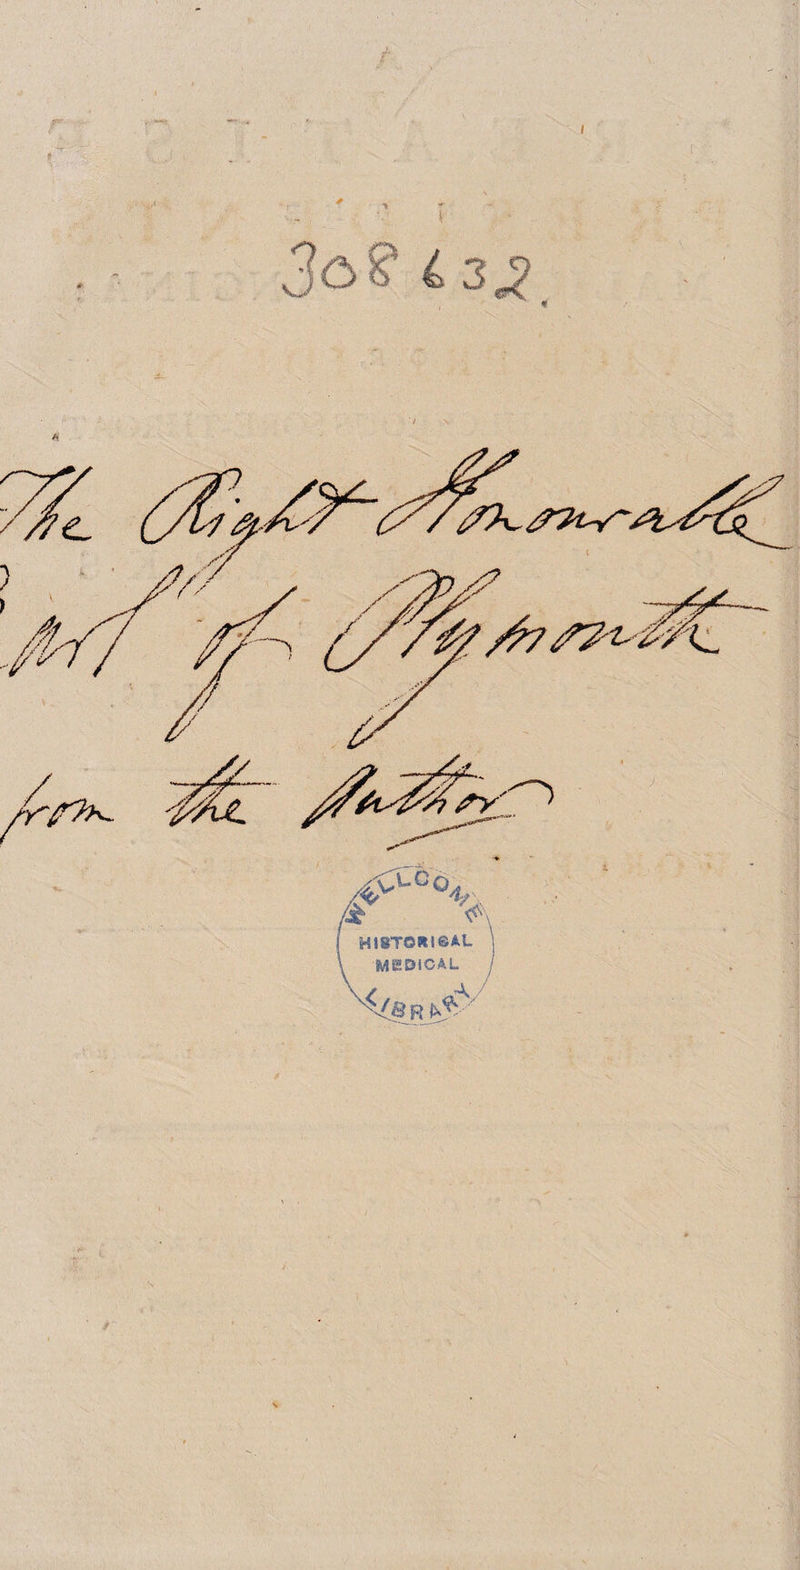 308632.
The Right Honourable
Earl of Plymouth
from the Author
WELLCOME
HISTORICAL
MEDICAL
LIBRARY